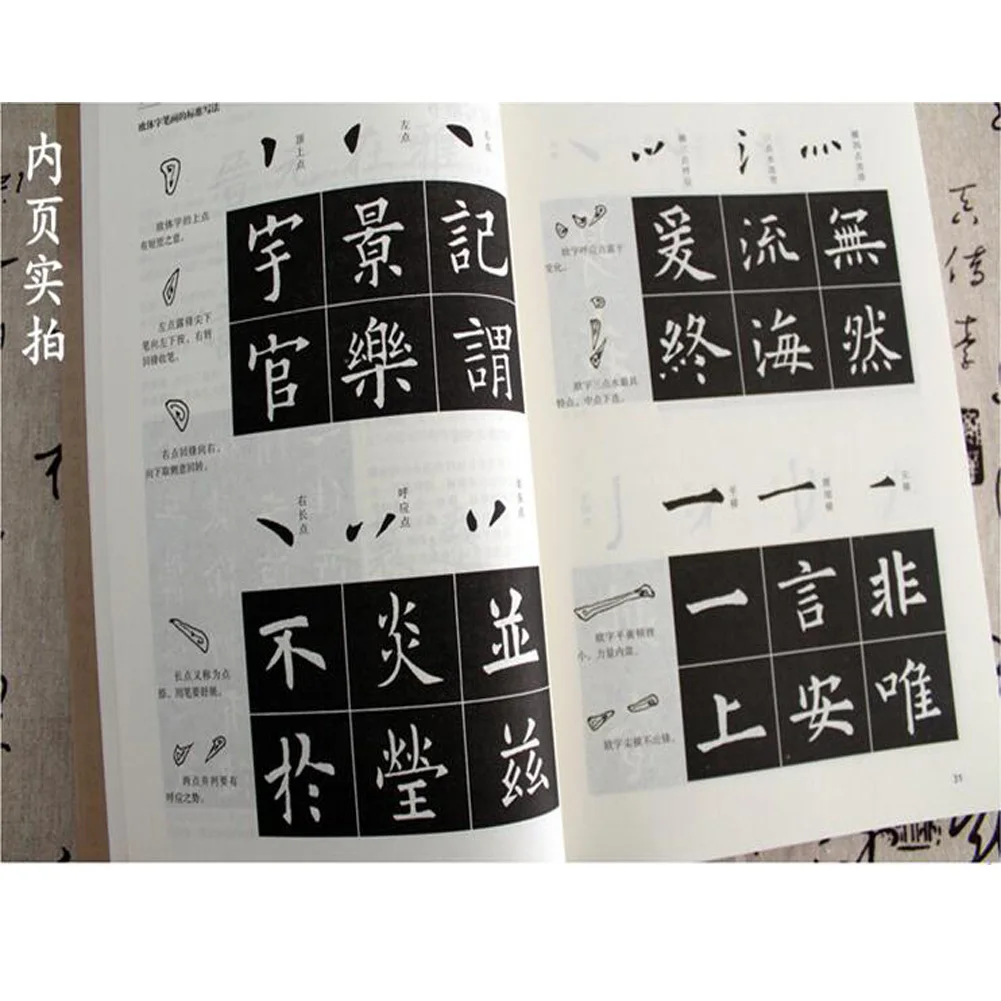 内页实拍
欧体字笔画的标准写法
顶上点
左点
右点
欧体字的上点
有短竖之意。
左点露锋尖下
笔向左下按，右转
回锋收笔。
右点回锋向右，
向下取侧意回转。
宇 景 記
官 樂 謂
右长点
呼应点
长点又称为点
捺，用笔要舒展。
两点并列要有
呼应之势。
不 炎 並
於 瑩 茲
欧字呼应点富于
变化。
欧字三点水最具
特点，中点下连。
爰 流 無
終 海 然
平横
尖横
欧字平横顿挫
小，力量内敛。
欧字尖横不出锋。
一 言 非
上 安 唯
31